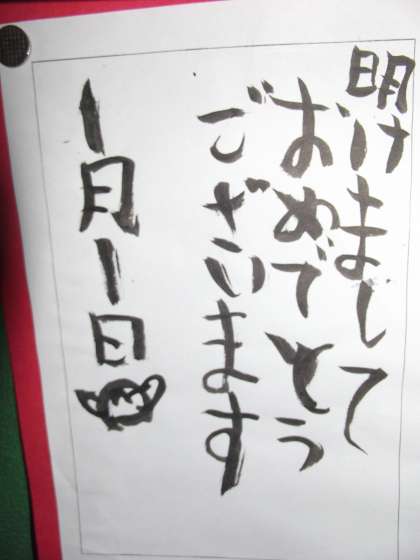 明けまして
おめでとう
ございます
1月1日